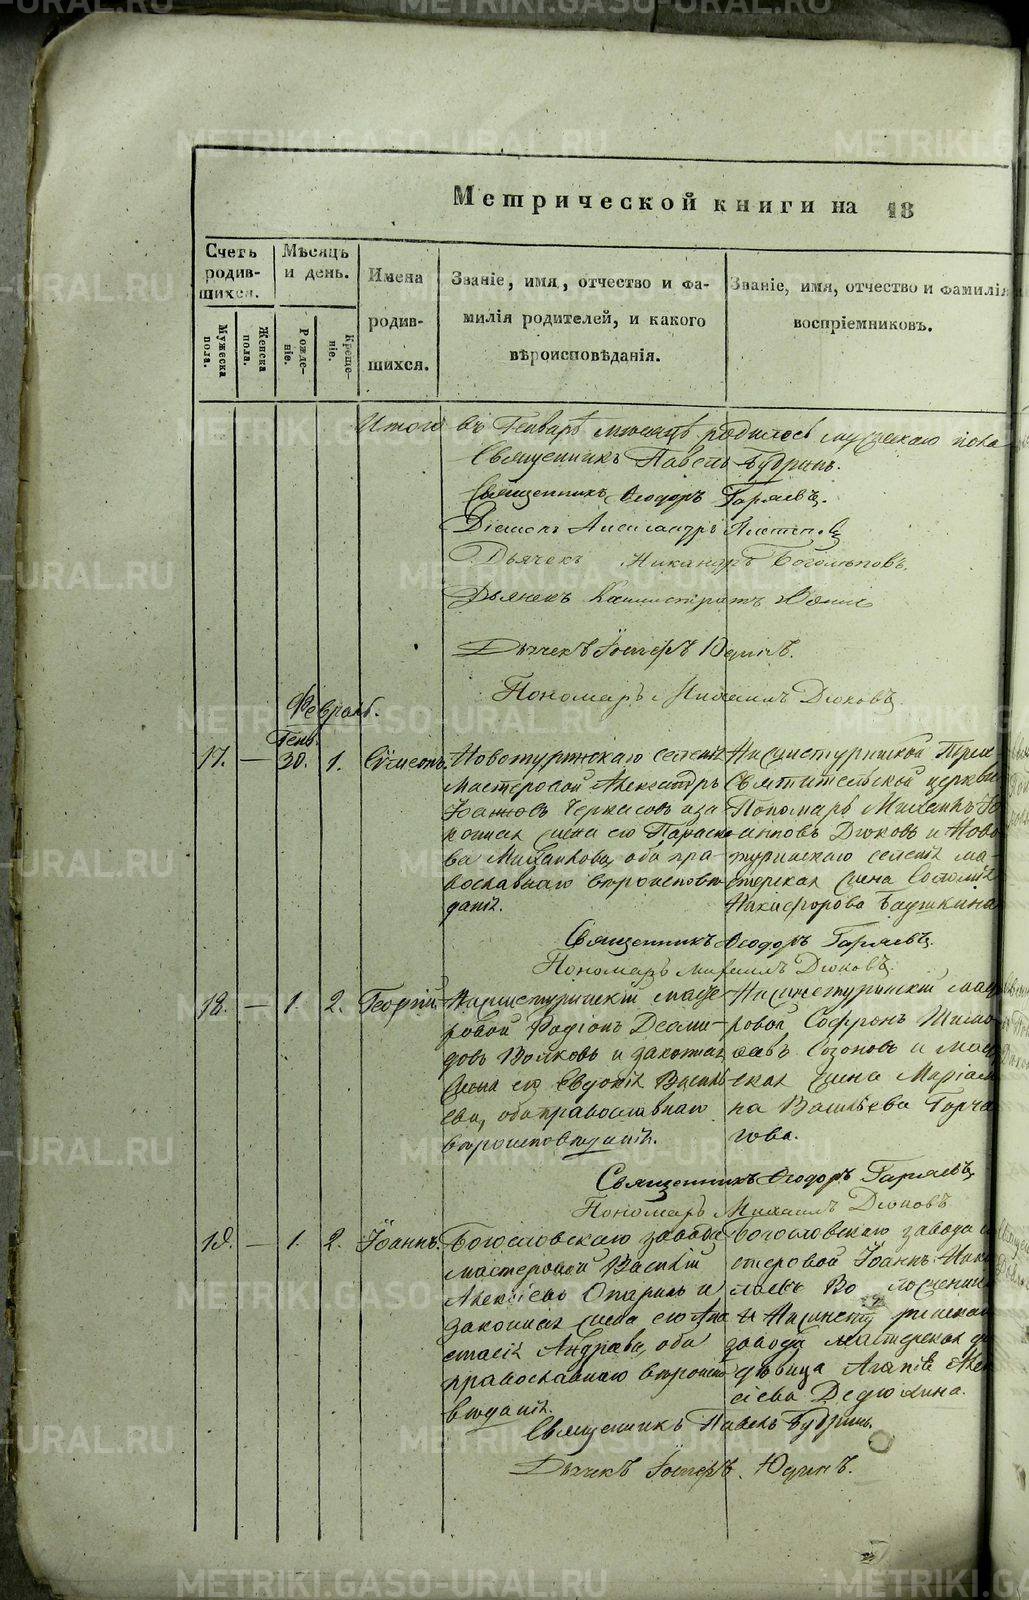 METRIKI.GASO-URAL.RU
Метрической книги на 18
Счетъ родив-шихся.
Мѣсяцъ и день.
Имена родив-шихся.
Званіе, имя, отчество и фа-
милія родителей, и какого
вѣроисповѣданія.
Званіе, имя, отчество и фамилія
воспріемниковъ.
Мужеска пола.
Женска пола.
Рожде-ніе.
Креще-ніе.
Итого въ Генварѣ мѣсяцѣ родилось мужескаго пола
Священникъ Павелъ Будринъ.
Священникъ Ѳеодоръ Гаряевъ.
Діаконъ Александръ
Дьячекъ Никандръ Боголѣповъ.
Дьячекъ Каллистратъ
Дьячекъ Іосифъ Юдинъ.
Пономарь Михаилъ Дюковъ
Февраль.
Генв.
17. — 30. 1. Сѵмеонъ.
Новотурьинскаго селенія
мастеровой Александръ
Іоанновъ Черкасовъ и за
конная жена его Параске
ва Михайлова, оба пра-
вославнаго вѣроисповѣ
данія.
Нижнетуринской
Святительской церкви
Пономарь Михаилъ
Дюковъ и Ново
туринскаго селенія ма-
стерская жена Соломія
Никифорова Башкина
Священникъ Ѳеодоръ Гаряевъ.
Пономарь Михаилъ Дюковъ.
18. — 1. 2. Георгій.
Нижнетуринскій масте
ровой Родіонъ Деми-
довъ Волковъ и законная
жена его Евдокія Василь
ева, оба православнаго
вѣроисповѣданія.
Нижнетуринскій мас
ровой Софронъ
Созоновъ и мас
ская жена Маріам
на Васильева Горча
гова.
Священникъ Ѳеодоръ Гаряевъ.
Пономарь Михаилъ Дюковъ
19. — 1. 2. Іоаннъ.
Богословскаго завода
мастеровой Василій
Алексѣевъ Опаринъ и
законная жена его Ана
стасія Андреева, оба
православнаго вѣроиспо
вѣданія.
Богословскаго завода
стеровой Іоаннъ Нико
лаевъ
и Нижнету ринскаго
завода мастерская
дѣвица Агапія Алек
сіева Дедюхина.
Священникъ Павелъ Будринъ.
Дьячекъ Іосифъ Юдинъ.